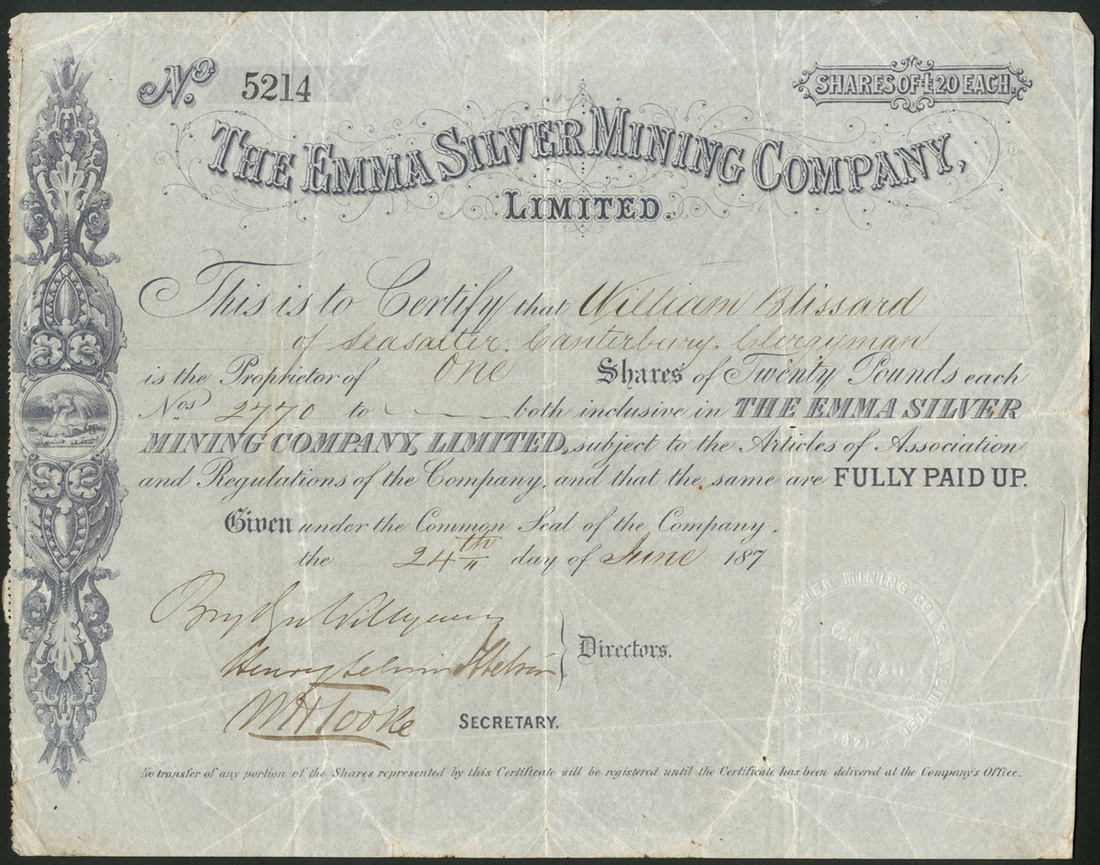 No. 5214
SHARES OF £20 EACH.
THE EMMA SILVER MINING COMPANY,
LIMITED.
This is to Certify that William Blissard
of Seasalter. Canterbury. Clergyman
is the Proprietor of One Shares of Twenty Pounds each
Nos 2770 to both inclusive in THE EMMA SILVER
MINING COMPANY, LIMITED, subject to the Articles of Association
and Regulations of the Company, and that the same are FULLY PAID UP.
Given under the Common Seal of the Company.
the 24th day of June 187
Henry
Directors.
SECRETARY.
SILVER MINING LIMITED
No transfer of any portion of the Shares represented by this Certificate will be registered until the Certificate has been delivered at the Company's Office.